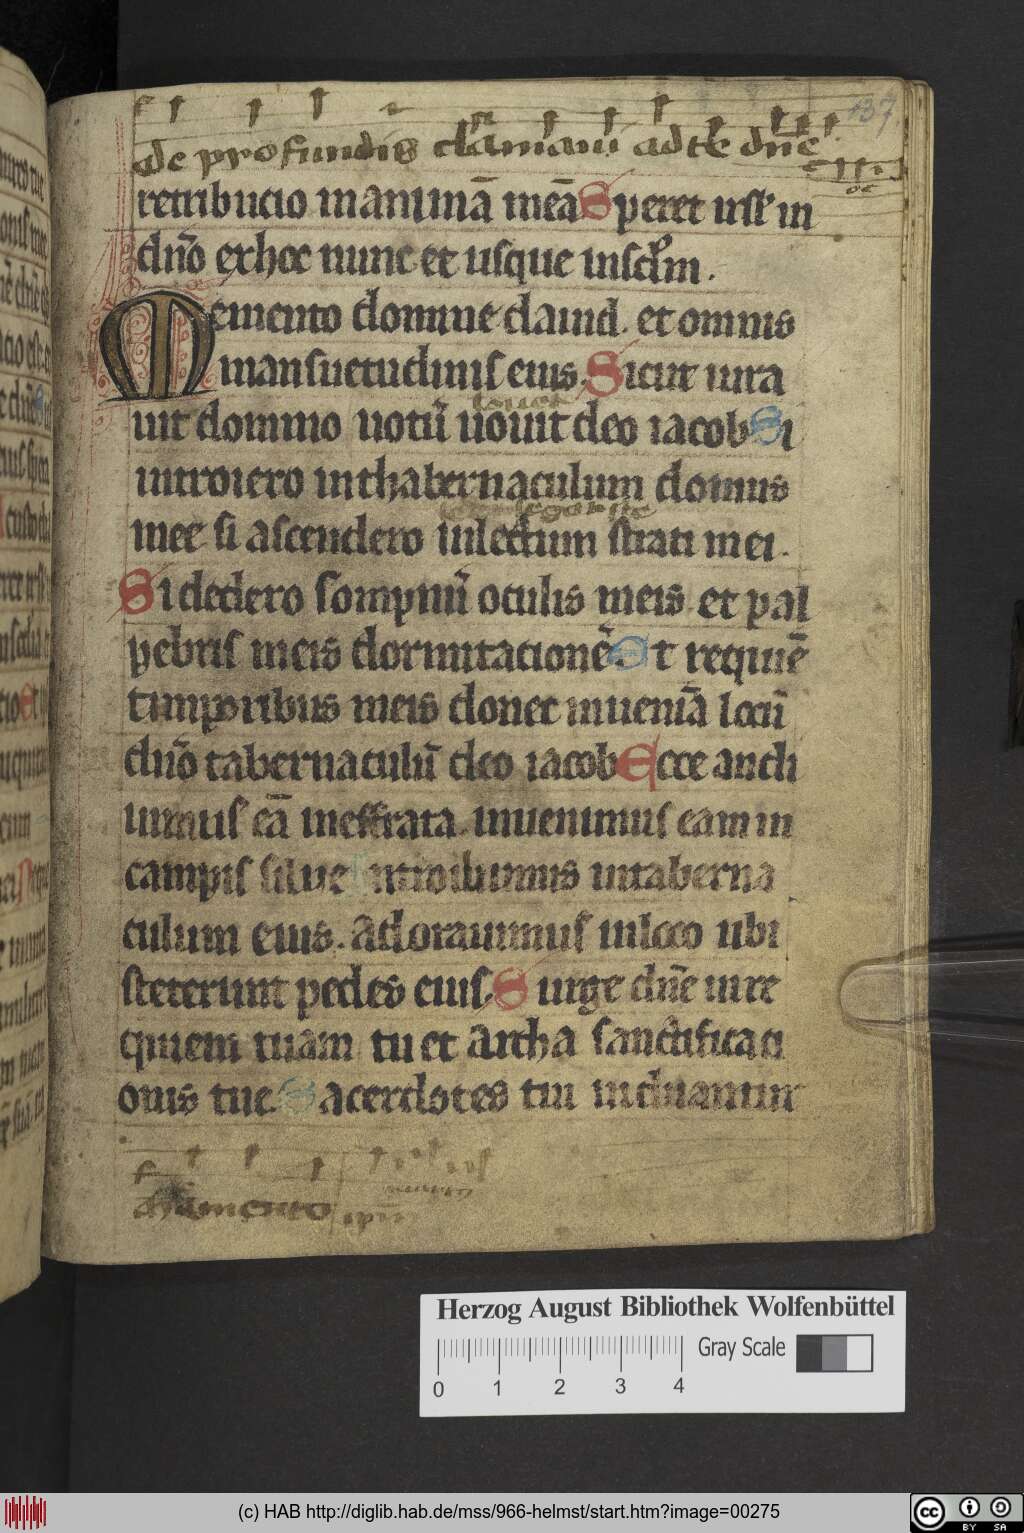 137
de profundis clamaui ad te dn̄e
retribucio in anima mēa Speret isrł in
dn̄o ex hoc nunc et usque insclm̄.
Memento domine dauid. et omnis
mansuetudinis eius. Sicut iura
uit domino uotū uouit deo iacob Si
introiero in thabernaculum domus
mee si ascendero in lectum strati mei.
Si dedero sompnū oculis meis et pal
pebris meis dormitationē. Et requiē
timporibus meis donec inueniā locū
dn̄o tabernaculū deo iacob Ecce audi
uimus eā in effrata. inuenimus eam in
campis silue introibimus in taberna
culum eius. adorauimus in loco ubi
steterunt pedes eius Surge dn̄e in re
quiem tuam tu et archa sanctificati
onis tue. Sacerdotes tui induantur
Herzog August Bibliothek Wolfenbüttel
Gray Scale
0 1 2 3 4
(c) HAB http://diglib.hab.de/mss/966-helmst/start.htm?image=00275
cc BY SA